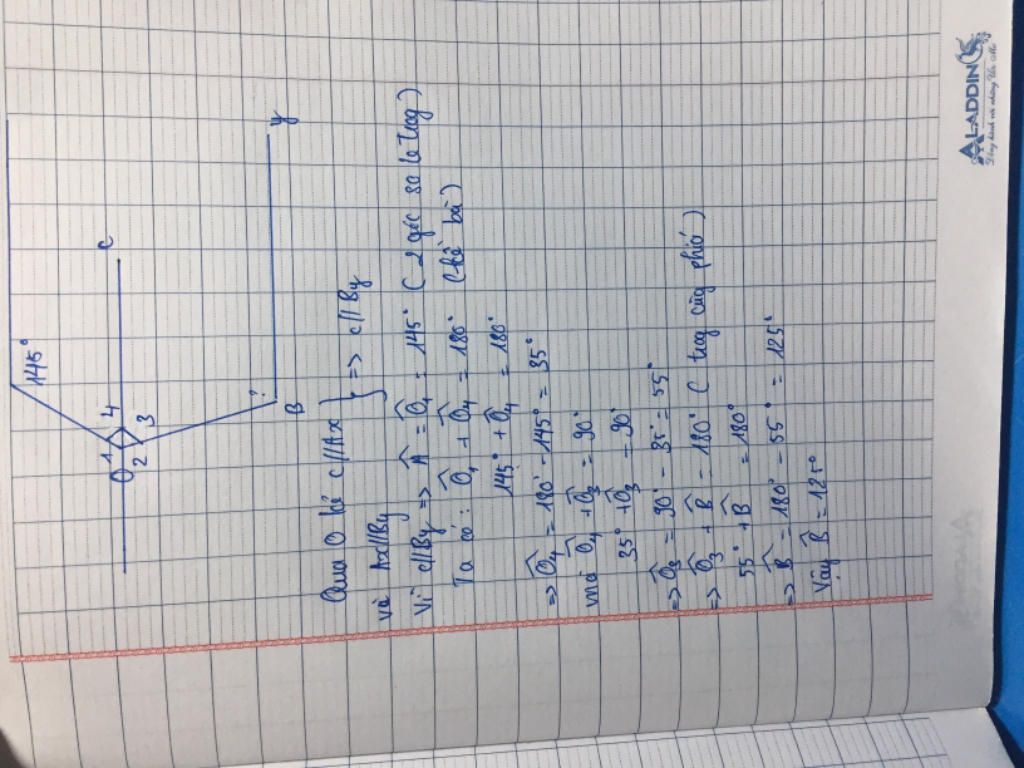 145°
O
1
4
2
3
c
?
B
y
Qua O kẻ c//Ax } => c//By
và Ax//By
Vì c//By => Â = Ô₁ = 145° (2 góc so le trog)
Ta có: Ô₁ + Ô₄ = 180° (kề bù)
145° + Ô₄ = 180°
=> Ô₄ = 180° - 145° = 35°
mà Ô₄ + Ô₃ = 90°
35° + Ô₃ = 90°
=> Ô₃ = 90° - 35° = 55°
=> Ô₃ + B̂ = 180° (trog cùg phía)
55° + B̂ = 180°
=> B̂ = 180° - 55° = 125°
Vậy B̂ = 125°
ALADDIN